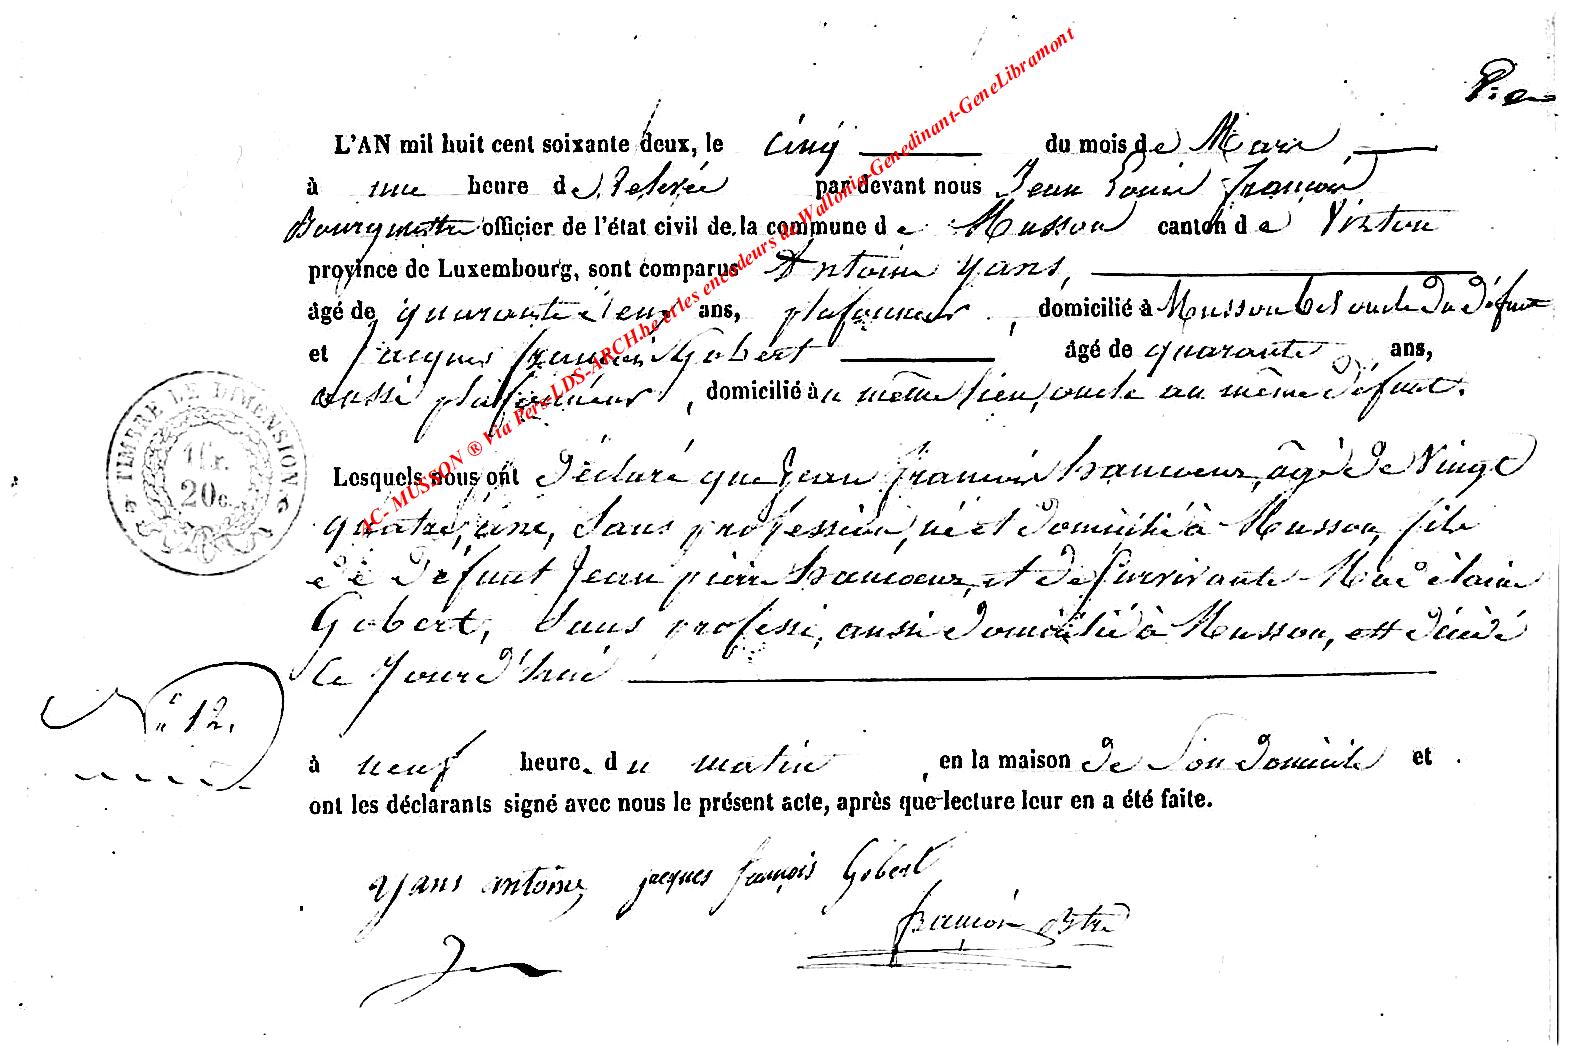 P.e
L'AN mil huit cent soixante deux, le cinq du mois de Mars,
à une heure de relevée par devant nous Jean Louis françois
officier de l'état civil de la commune de Musson canton de Virton
province de Luxembourg, sont comparus Antoine yans,
âgé de quarante deux ans, plafonneur, domicilié à Musson bel oncle du défunt
et Jacques françois Gobert âgé de quarante ans,
aussi plafonneur, domicilié au même lieu, oncle au même défunt.
Lesquels nous ont déclaré que Jean françois hancoeur, âgé de Vingt
quatre, ans, Sans profession, né et domicilié à Musson, fils
de défunt Jean pierre hancoeur, et de Survivante Madelaine
Gobert, Sans professi, aussi domicilié à Musson, est décédé
ce Jourd'hui
N° 12.
à neuf heure du matin, en la maison de Son domicile et
ont les déclarants signé avec nous le présent acte, après que lecture leur en a été faite.
yans antoine jacques françois Gobert
TIMBRE DE DIMENSION
1 fr.
20 c.
AC- MUSSON ® Via Pers-LDS-ARCH.be et les encodeurs de Wallonia-Genedinant-GeneLibramont